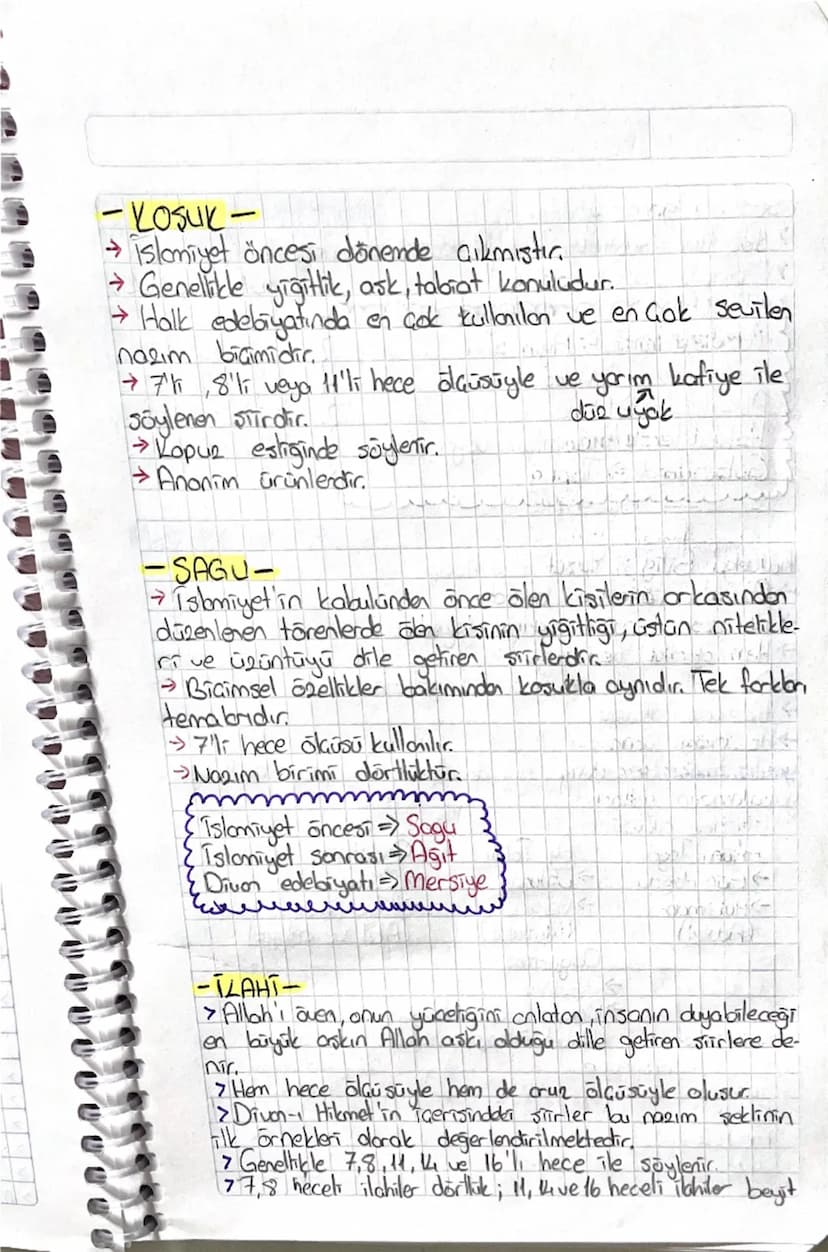 - KOŞUK -
→ İslamiyet öncesi dönemde çıkmıştır.
→ Genellikle yiğitlik, aşk, tabiat konuludur.
→ Halk edebiyatında en çok kullanılan ve en çok sevilen
nazım biçimidir.
→ 7'li, 8'li veya 11'li hece ölçüsüyle ve yarım kafiye ile
söylenen şiirdir. düz uyak
→ Kopuz eşliğinde söylenir.
→ Anonim ürünlerdir.
- SAGU -
→ İslamiyet'in kabulünden önce ölen kişilerin arkasından
düzenlenen törenlerde ölen kişinin yiğitliği, üstün nitelikle-
ri ve üzüntüyü dile getiren şiirlerdir.
→ Biçimsel özellikler bakımından koşukla aynıdır. Tek farkları
temalarıdır.
→ 7'li hece ölçüsü kullanılır.
→ Nazım birimi dörtlüktür.
İslamiyet öncesi ⇒ Sagu
İslamiyet sonrası ⇒ Ağıt
Divan edebiyatı ⇒ Mersiye
- İLAHİ -
> Allah'ı öven, onun yüceliğini anlatan, insanın duyabileceği
en büyük aşkın Allah aşkı olduğu dille getiren şiirlere de-
nir.
> Hem hece ölçüsüyle hem de aruz ölçüsüyle oluşur.
> Divan-ı Hikmet'in içerisindeki şiirler bu nazım şeklinin
ilk örnekleri olarak değerlendirilmektedir.
> Genellikle 7, 8, 11, 14 ve 16'lı hece ile söylenir.
> 7, 8 heceli ilahiler dörtlük; 11, 14 ve 16 heceli ilahiler beyit